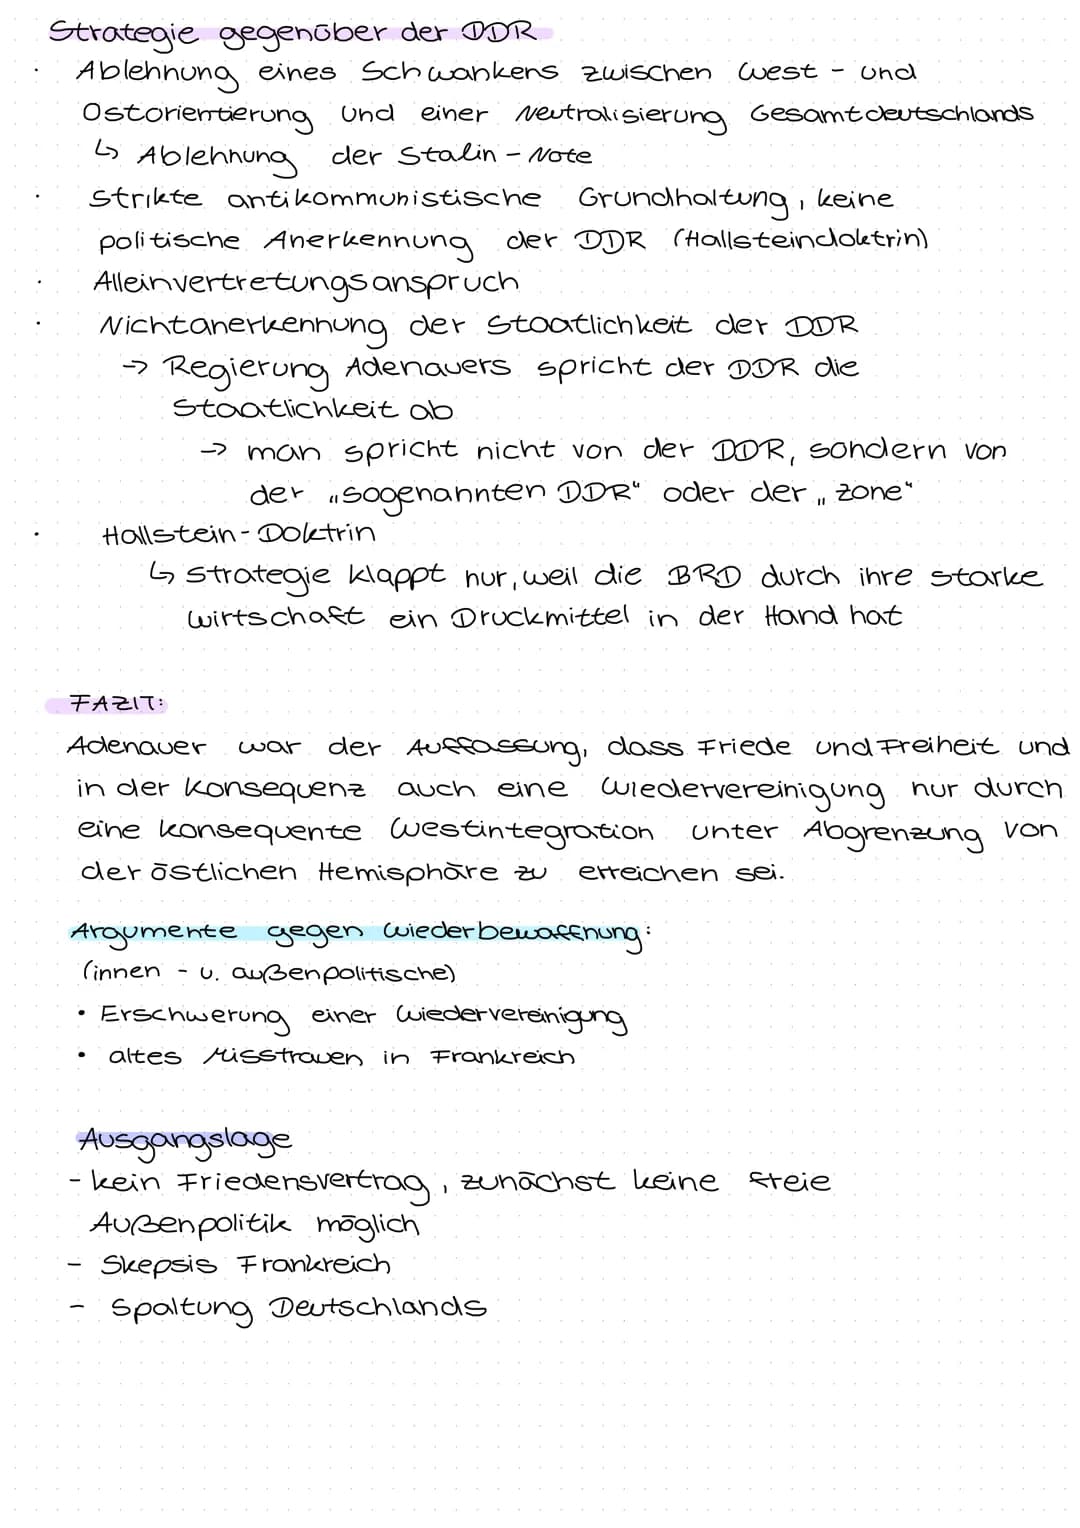 Strategie gegenüber der DDR
· Ablehnung eines Schwankens zwischen West - und
Ostorientierung und einer Neutralisierung Gesamtdeutschlands
↳ Ablehnung der Stalin - Note
· Strikte antikommunistische Grundhaltung, keine
politische Anerkennung der DDR (Hallsteindoktrin)
· Alleinvertretungsanspruch
· Nichtanerkennung der Staatlichkeit der DDR
→ Regierung Adenauers spricht der DDR die
Staatlichkeit ab
→ man spricht nicht von der DDR, sondern von
der „sogenannten DDR“ oder der „Zone“
· Hallstein-Doktrin
↳ Strategie klappt nur, weil die BRD durch ihre starke
Wirtschaft ein Druckmittel in der Hand hat
FAZIT:
Adenauer war der Auffassung, dass Friede und Freiheit und
in der Konsequenz auch eine Wiedervereinigung nur durch
eine konsequente Westintegration unter Abgrenzung von
der östlichen Hemisphäre zu erreichen sei.
Argumente gegen Wiederbewaffnung:
(innen - u. außenpolitische)
• Erschwerung einer Wiedervereinigung
• altes Misstrauen in Frankreich
Ausgangslage
- kein Friedensvertrag, zunächst keine freie
Außenpolitik möglich
- Skepsis Frankreich
- Spaltung Deutschlands